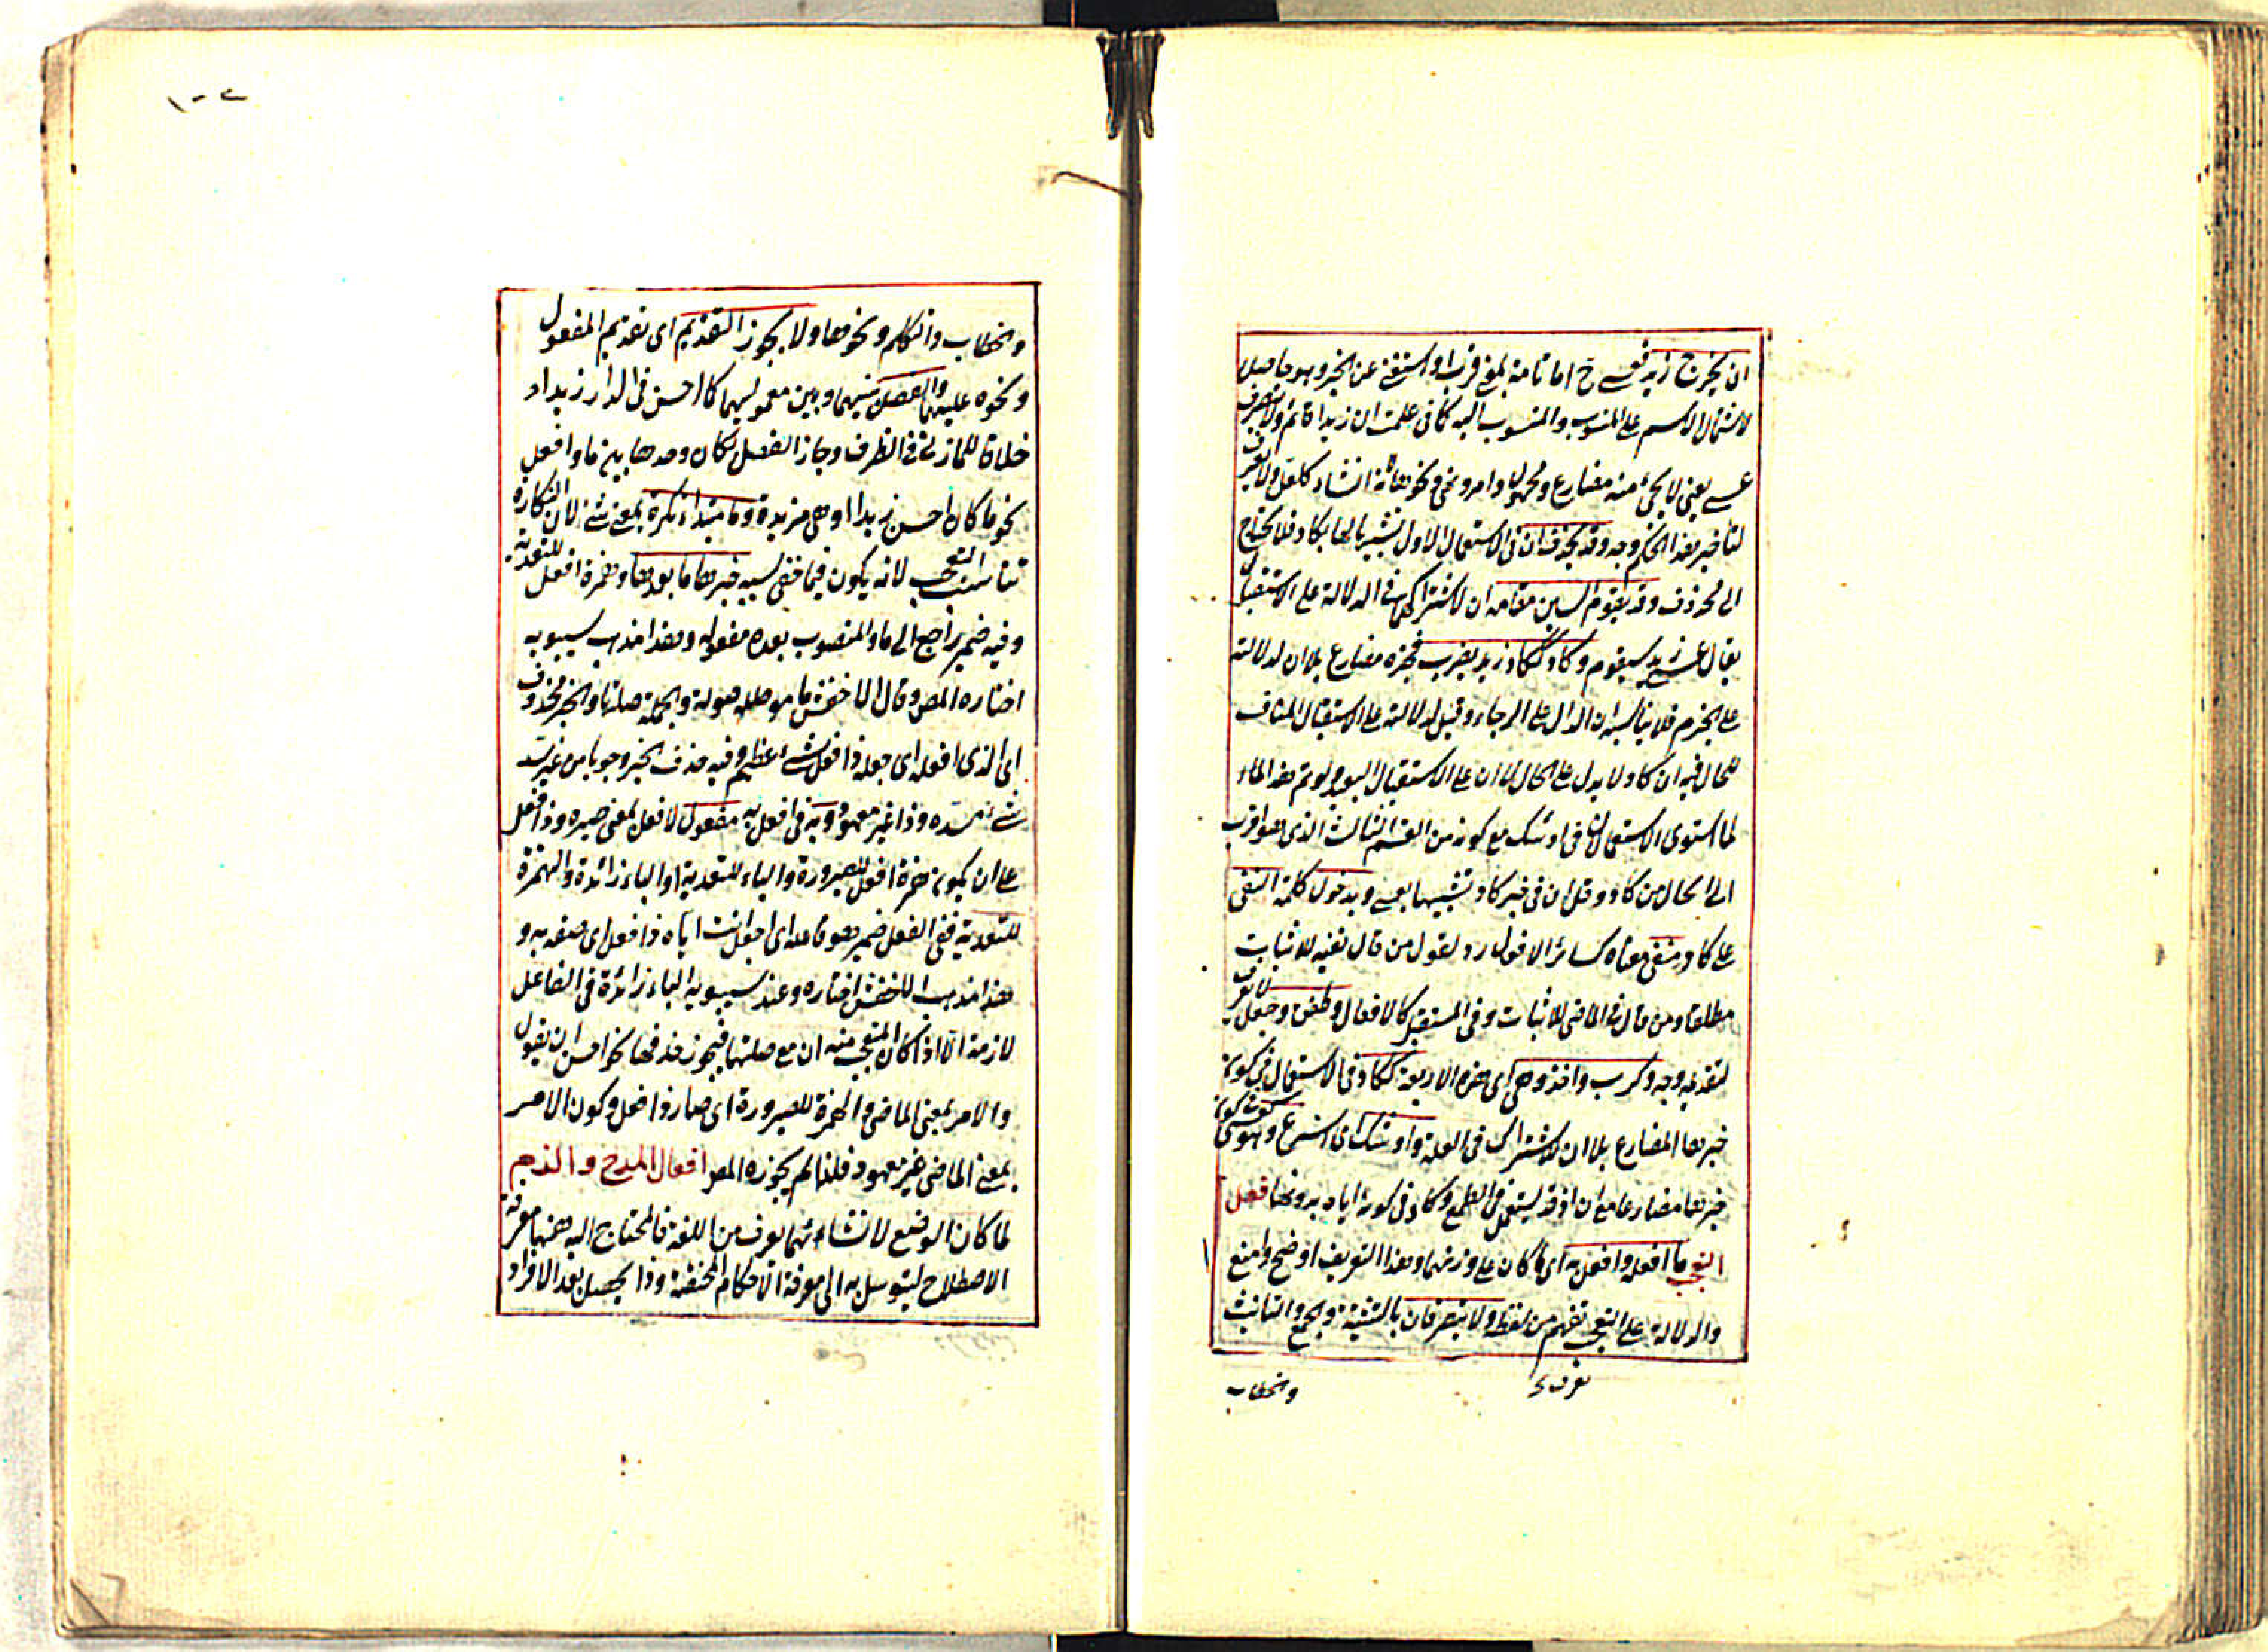 ان يخرج زيد فعسى ح اما تامة بمعنى قرب او استغنى عن الخبر وهو حاصل
لاشتمال الاسم على المنسوب والمنسوب اليه كما فى علمت ان زيدا قائم ولا يتصرف
عسى يعنى لا يجئ منه مضارع ومجهول وامر ونهى ونحوها انشاء كلعل ولا يعرف
لتأخير هذا الحكم وجه وقد يحذف ان فى الاستعمال الاول تشبيها لها بكاد فلا يحتاج
الى محذوف وقد يقوم السين مقام ان لاشتراكهما فى الدلالة على الاستقبال
يقال عسى زيد سيقوم وكاد ككاد زيد يضرب فخبره مضارع بلا ان لدلالته
على الجزم فلا يناسبه ان الدال على الرجاء وقيل لدلالته على الاستقبال المناف
للحال فيه ان كاد لا يدل على الحال لا ان على الاستقبال البعيد ولو تم هذا الماء
لما استوى الاستعمالان فى اوشك مع كونه من القسم الثالث الذى هو اقرب
الى الحال من كاد وقل ان فى خبر كاد تشبيها بعسى وبدخول كلمة النفى
على كاد ينتفى معناه كسائر الافعال رد لقول من قال نفيه للاثبات
مطلقا ومن قال فى الماضى للاثبات وفى المستقبل كالافعال وطفق وجعل لا يعرف
لتقديمه وجه وكرب واخذ وهى اى هذه الاربعة ككاد فى الاستعمال فى كون
خبرها المضارع بلا ان لاشتراك فى العلة واوشك اى اسرع وهو كعسى فى كون
خبرها مضارعا مع ان اذ قد يستعمل فى الطمع وكاد فى كونه اياه بدونها فعل
التعجب ما افعله وافعل به اى ما كان على وزنهما وهذا التعريف اوضح وامنع
والدلالة على التعجب تفهم من لفظه ولا يتصرفان بالتثنية والجمع والتأنيث
والخطاب
والخطاب والتكلم ونحوها ولا يجوز التقديم اى تقديم المفعول
ونحوه عليهما والفصل بينهما وبين معموليهما كما احسن فى الدار زيدا
خلافا للمازنى فى الظرف وجاز الفصل بكان وحدها بين ما وافعل
نحو ما كان احسن زيدا وهى مزيدة وما مبتداء نكرة بمعنى شئ لان النكارة
تناسب التعجب لانه يكون فيما خفى سببه خبرها ما بعدها وهمزة افعل للتعدية
وفيه ضمير راجع الى ما والمنصوب بعده مفعوله وهذا مذهب سيبويه
اختاره المص وقال الاخفش ما موصولة والجملة صلتها والخبر محذوف
اى الذى افعله اى جعله ذا فعل شئ عظيم وفيه حذف الخبر وجوبا من غير سد
شئ مسده وذا غير معهود وبه فى افعل به مفعول لافعل بمعنى صيره ذا فعل
على ان يكون همزة افعل للصيرورة والباء للتعدية او الباء زائدة والهمزة
للتعدية ففى الفعل ضمير هو فاعله اى اجعل انت اياه ذا فعل اى صفه به و
هذا مذهب الاخفش اختاره وعند سيبويه الباء زائدة فى الفاعل
لازمة الا اذا كان المتعجب منه ان مع صلتها فيجوز حذفها نحو احسن ان يقول
والامر بمعنى الماضى والهمزة للصيرورة اى صار ذا فعل وكون الامر
بمعنى الماضى غير معهود فلذا لم يجوزه المص افعال المدح والذم
لما كان الوضع لانشائهما يعرف من اللغة فالمحتاج اليه ههنا معرفة
الاصطلاح ليتوسل به الى معرفة الاحكام المختصة وذا يحصل بعد الافراد